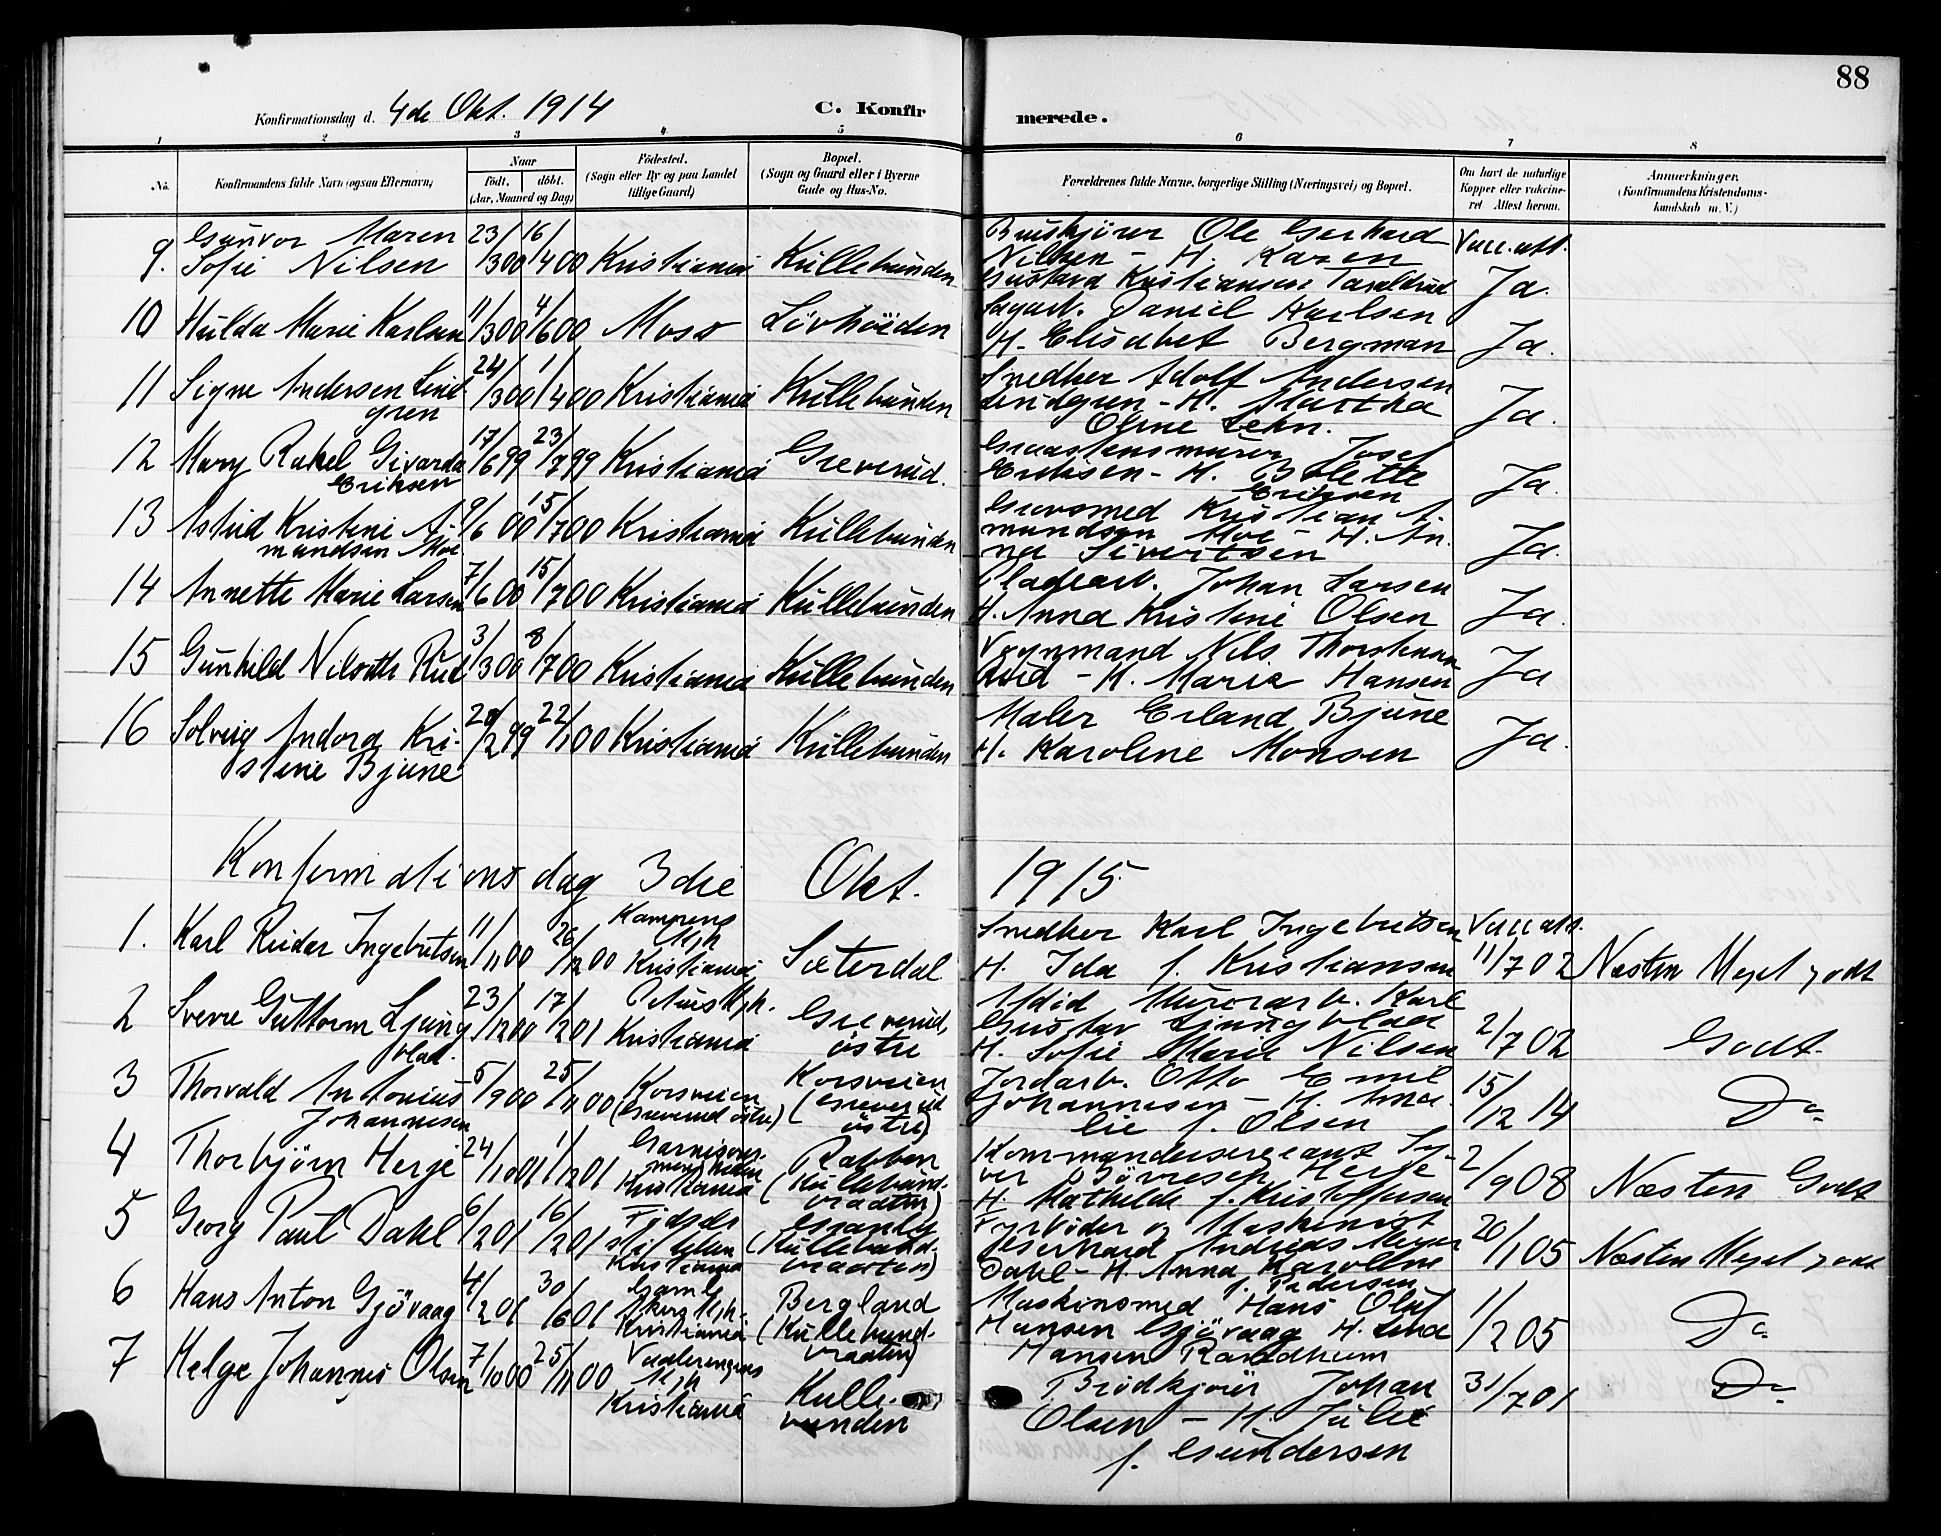 88
Konfirmationsdag d. 4de Okt. 1914 C. Konfirmerede.
1 2 3 4 5 6 7 8
No.
Konfirmandens fulde Navn (ogsaa Efternavn)
Naar
født. døbt.
(Aar, Maaned og Dag)
Fødested.
(Sogn eller By og paa Landet
tillige Gaard)
Bopæl.
(Sogn og Gaard eller i Byerne
Gade og Hus-No.
Forældrenes fulde Navne, borgerlige Stilling (Næringsvei) og Bopæl.
Om havt de naturlige
Kopper eller vakcine-
ret Attest herom.
Anmærkninger.
(Konfirmandens Kristendoms-
kundskab m. V.)
9. Gunvor Maren Sofie Nilsen 23/3 00 16/4 00 Kristiania Kullebunden Ole Gerhard Nilsen - H. Karen Gustava Kristiansen Taraldrud Vacc. att. Ja.
10 Hulda Marie Karlsen 11/3 00 4/6 00 Moss Lövhöiden Sagarb. Daniel Karlsen H. Elisabet Bergman Ja.
11 Signe Andersen Lindgren 24/3 00 1/4 00 Kristiania Kullebunden Snedker Adolf Andersen Lindgren - H. Martha Oline Lehn. Ja.
12 Mary Rakel Givarda Eriksen 17/6 99 23/7 99 Kristiania Greverud. Graastensmurer Josef Eriksen - H. Bolette Eriksen Ja.
13 Astrid Kristine A- mundsen Moe 9/6 00 15/7 00 Kristiania Kullebunden Grovsmed Kristian A- mundsen Moe - H. An- na Sivertsen Ja.
14 Annette Marie Larsen 7/6 00 15/7 00 Kristiania Kullebunden Pladearb. Johan Larsen H. Anna Kristine Olsen Ja.
15 Gunhild Nilsdtr Rud 3/3 00 8/7 00 Kristiania Kullebunden Vognmand Nels Thorstensen Rud - H. Marie Hansen Ja
16 Solveig Andora Kri- stine Bjune 28/2 99 22/1 00 Kristiania Kullebunden Maler Erland Bjune H. Karoline Monsen Ja.
Konfirmationsdag 3die Okt. 1915
1. Karl Reidar Ingebretsen 11/11 00 26/12 00 Kampens Kph Kristiania Sæterdal Snedker Karl Ingebretsen H. Ida f. Kristiansen Vacc att. 11/7 02 Næsten Meget godt
2 Sverre Guttorm Ljung blad. 23/12 00 17/2 01 Petrus Kph. Kristiania Greverud, östre Murerarb. Karl Gustav Ljungblad H. Sofie Marie Nilsen 2/7 02 Godt.
3 Thorvald Antonius Johannesen 5/9 00 25/11 00 Korsveien (Greverud östre) Korsveien (Greverud östre) Jordarb. Otto Emil Johannesen - H. Ama- lie f. Olsen 15/12 14 Do
4 Thorbjörn Herje 24/10 01 1/12 01 Garnisons- menigheden Kristiania Rabben (Kullebund- vraaten) Kommandersergeant Sy- ver Herje H. Mathilde f. Kristoffersen 2/9 08 Næsten Godt
5 Georg Paul Dahl 6/2 01 16/12 01 Födsels stiftelsen Kristiania Granly (Kullebund- vraaten) Fyrböder og Maskinist Gerhard Andreas Meyer Dahl - H. Anna Karoline f. Pedersen 20/1 05 Næsten Meget godt
6 Hans Anton Gjövaag 4/2 01 30/6 01 Gaml. Akers Kph. Kristiania Bergland (Kullebund- vraaten) Maskinsmed Hans Oluf Hansen Gjövaag H. Lina Hansen Randheim 1/2 05 Do
7 Helge Johannes Olsen 7/10 00 25/11 00 Vaalerengens Kph Kristiania Kulle- bunden Brödkjörer Johan Olsen - H. Julie f. Gundersen 31/7 01 Do